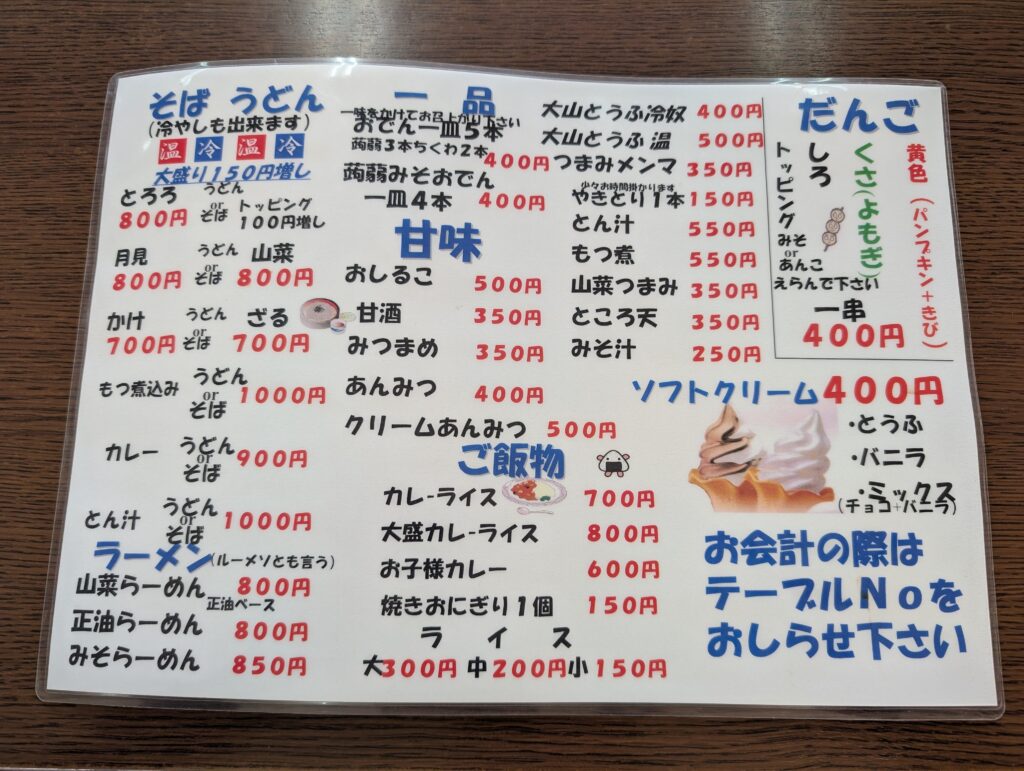 そば うどん
(冷やしも出来ます)
温 冷 温 冷
大盛り150円増し
とろろ うどん or そば トッピング
800円 100円増し
月見 うどん or そば 山菜
800円 800円
かけ うどん or そば ざる
700円 700円
もつ煮込み うどん or そば 1000円
カレー うどん or そば 900円
とん汁 うどん or そば 1000円
ラーメン(ルーメソとも言う)
山菜らーめん 800円
正油ベース
正油らーめん 800円
みそらーめん 850円
一 品
一味をかけてお召上がり下さい
おでん一皿5本
蒟蒻3本ちくわ2本
400円
蒟蒻みそおでん
一皿4本 400円
甘味
おしるこ 500円
甘酒 350円
みつまめ 350円
あんみつ 400円
クリームあんみつ 500円
大山とうふ冷奴 400円
大山とうふ 温 500円
つまみメンマ 350円
少々お時間掛かります
やきとり1本 150円
とん汁 550円
もつ煮 550円
山菜つまみ 350円
ところ天 350円
みそ汁 250円
ご飯物
カレ-ライス 700円
大盛カレ-ライス 800円
お子様カレー 600円
焼きおにぎり1個 150円
ラ イ ス
大300円 中200円小150円
だんご
黄色(パンプキン+きび)
くさ(よもぎ)
しろ
トッピング
みそ
or
あんこ
えらんで下さい
一串
400円
ソフトクリーム400円
・とうふ
・バニラ
・ミックス
(チョコ+バニラ)
お会計の際は
テーブルNoを
おしらせ下さい